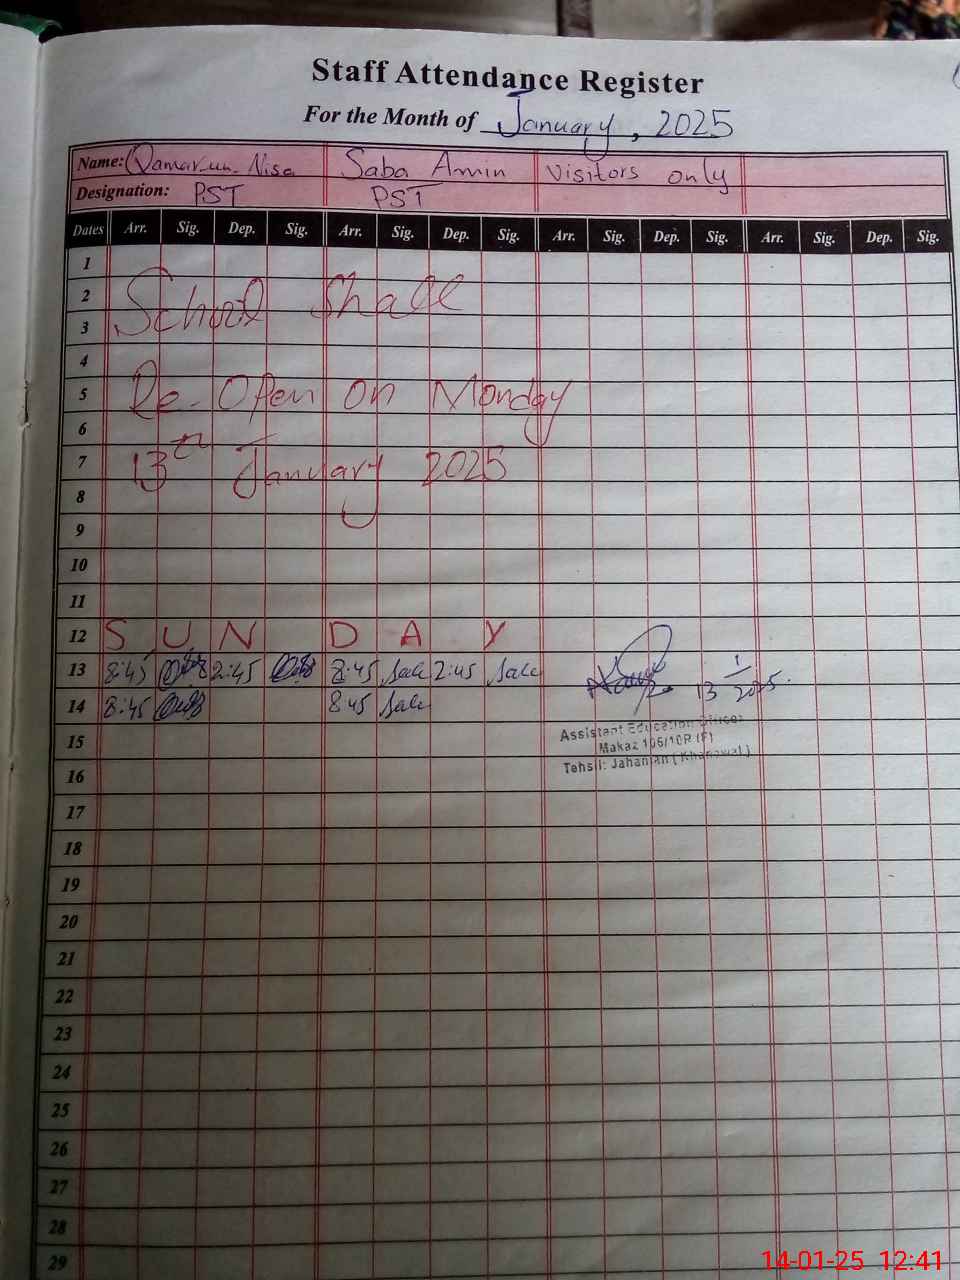 Staff Attendance Register
For the Month of January, 2025
Name: Qamar-un-Nisa Saba Amin visitors only
Designation: PST PST
Dates Arr. Sig. Dep. Sig. Arr. Sig. Dep. Sig. Arr. Sig. Dep. Sig. Arr. Sig. Dep. Sig.
1
2 School Shall
3
4
5 Re-Open on Monday
6
7 13th January 2025
8
9
10
11
12 S U N D A Y
13 8:45 2:45 8:45 2:45 13 1/2025.
14 8:45 8 45
15 Assistant Education Officer
Makaz 106/10R (F)
16 Tehsil: Jahanian ( Khanewal )
17
18
19
20
21
22
23
24
25
26
27
28
29
14-01-25 12:41